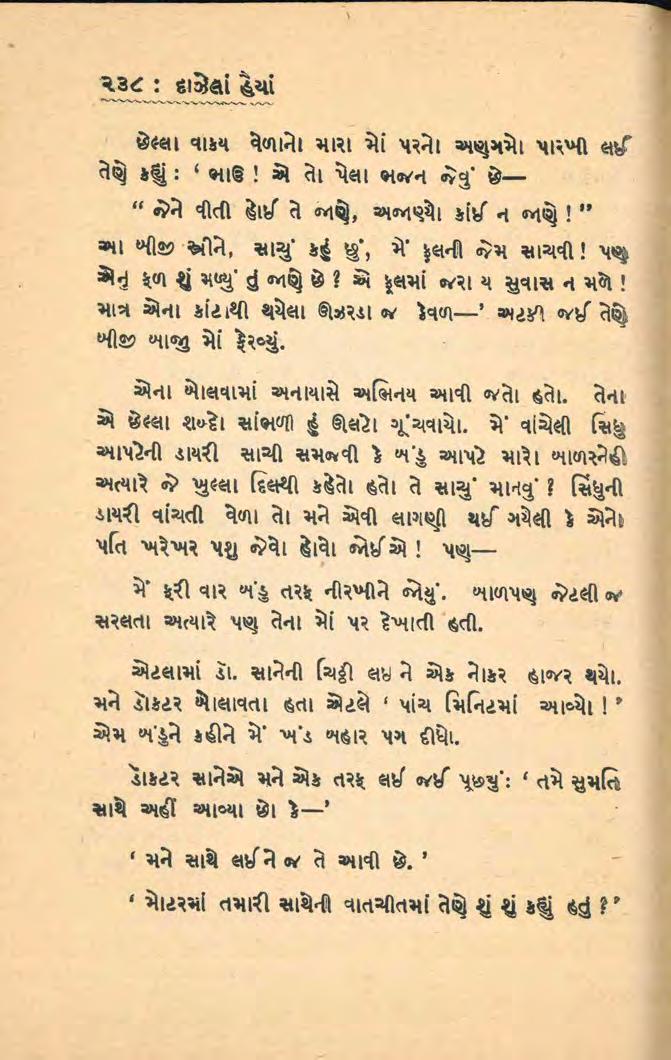 ૨૩૮ : દાઝેલાં હૈયાં
છેલ્લા વાકય વેળાનો મારા મોં પરનો અણગમો પારખી લઈ
તેણે કહ્યું : ‘ ભાઉ ! એ તો પેલા ભજન જેવું છે—
“ જેને વીતી હોઈ તે જાણે, અજાણ્યો કાંઈ ન જાણે ! ”
આ બીજી સ્ત્રીને, સાચું કહું છું, મેં ફુલની જેમ સાચવી ! પણ
એનુ ફળ શું મળ્યું તું જાણે છે ? એ ફૂલમાં જરા ય સુવાસ ન મળે !
માત્ર એના કાંટાથી થયેલા ઊઝરડા જ કેવળ—’ અટકી જઈ તેણે
બીજી બાજુ મોં ફેરવ્યું.
એના બોલવામાં અનાયાસે અભિનય આવી જતો હતો. તેના
એ છેલ્લા શબ્દો સાંભળી હું ઊલટો ગૂંચવાયો. મેં વાંચેલી સિંધુ
આપટેની ડાયરી સાચી સમજવી કે બંડુ આપટે મારો બાળસ્નેહી
અત્યારે જે ખુલ્લા દિલથી કહેતો હતો તે સાચું માનવું ? સિંધુની
ડાયરી વાંચતી વેળા તો મને એવી લાગણી થઈ ગયેલી કે એનો
પતિ ખરેખર પશુ જેવો હોવો જોઈએ ! પણ—
મેં ફરી વાર બંડુ તરફ નીરખીને જોયું. બાળપણ જેટલી જ
સરલતા અત્યારે પણ તેના મોં પર દેખાતી હતી.
એટલામાં ડૉ. સાનેની ચિઠ્ઠી લઇ ને એક નોકર હાજર થયો.
મને ડૉકટર બોલાવતા હતા એટલે ‘ પાંચ મિનિટમાં આવ્યો ! ’
એમ બંડુને કહીને મેં ખંડ બહાર પગ દીધો.
ડૉકટર સાનેએ મને એક તરફ લઈ જઈ પૂછયું : ‘ તમે સુમતિ
સાથે અહીં આવ્યા છો કે—’
‘ મને સાથે લઈને જ તે આવી છે. ’
‘ મોટરમાં તમારી સાથેની વાતચીતમાં તેણે શું શું કહ્યું હતું ? ’